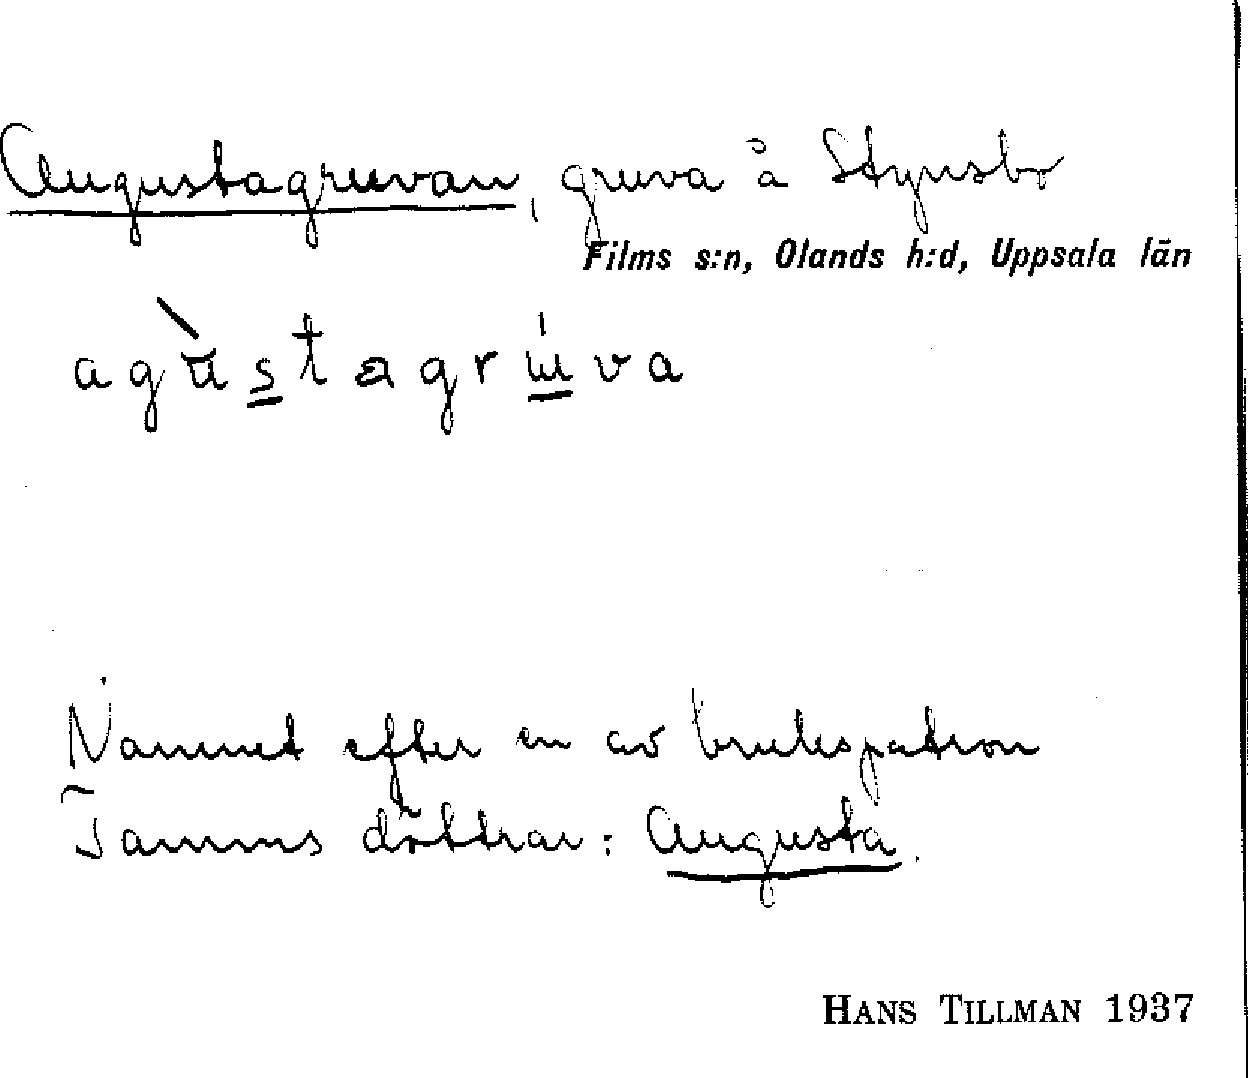 Augustagruvan, gruva å Stynsbo
Films s:n, Olands h:d, Uppsala län
agustagruva
Namnet efter en av brukspatron
Tamms döttrar: Augusta.
HANS TILLMAN 1937